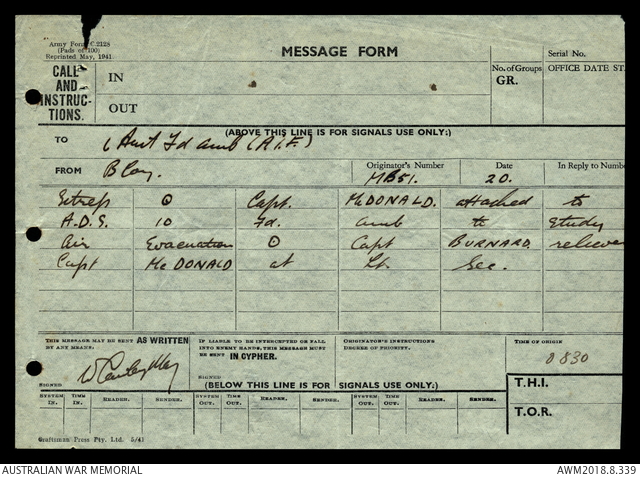 Army Form C.2128
(Pads of 100)
Reprinted May, 1941
MESSAGE FORM
Serial No.
CALL AND INSTRUC- TIONS.
IN
OUT
No. of Groups
GR.
OFFICE DATE ST
(ABOVE THIS LINE IS FOR SIGNALS USE ONLY:)
TO Aust Fd amb (A.I.F.)
FROM B Coy.
Originator's Number
MB51.
Date
20.
In Reply to Numbe
⊙ Capt. McDONALD. attached to
A.D.S. 10 Fd. amb to study
air Evacuation ⊙ Capt BURNARD. relieve
Capt McDONALD at Lt. Sec.
THIS MESSAGE MAY BE SENT AS WRITTEN BY ANY MEANS.
SIGNED
IF LIABLE TO BE INTERCEPTED OR FALL INTO ENEMY HANDS, THIS MESSAGE MUST BE SENT IN CYPHER.
SIGNED
ORIGINATOR'S INSTRUCTIONS DEGREE OF PRIORITY.
TIME OF ORIGIN
0830
(BELOW THIS LINE IS FOR SIGNALS USE ONLY:)
T.H.I.
T.O.R.
SYSTEM IN. TIME IN. READER. SENDER. SYSTEM OUT. TIME OUT. READER. SENDER. SYSTEM OUT. TIME OUT. READER. SENDER.
Craftsman Press Pty. Ltd. 5/41
AUSTRALIAN WAR MEMORIAL
AWM2018.8.339